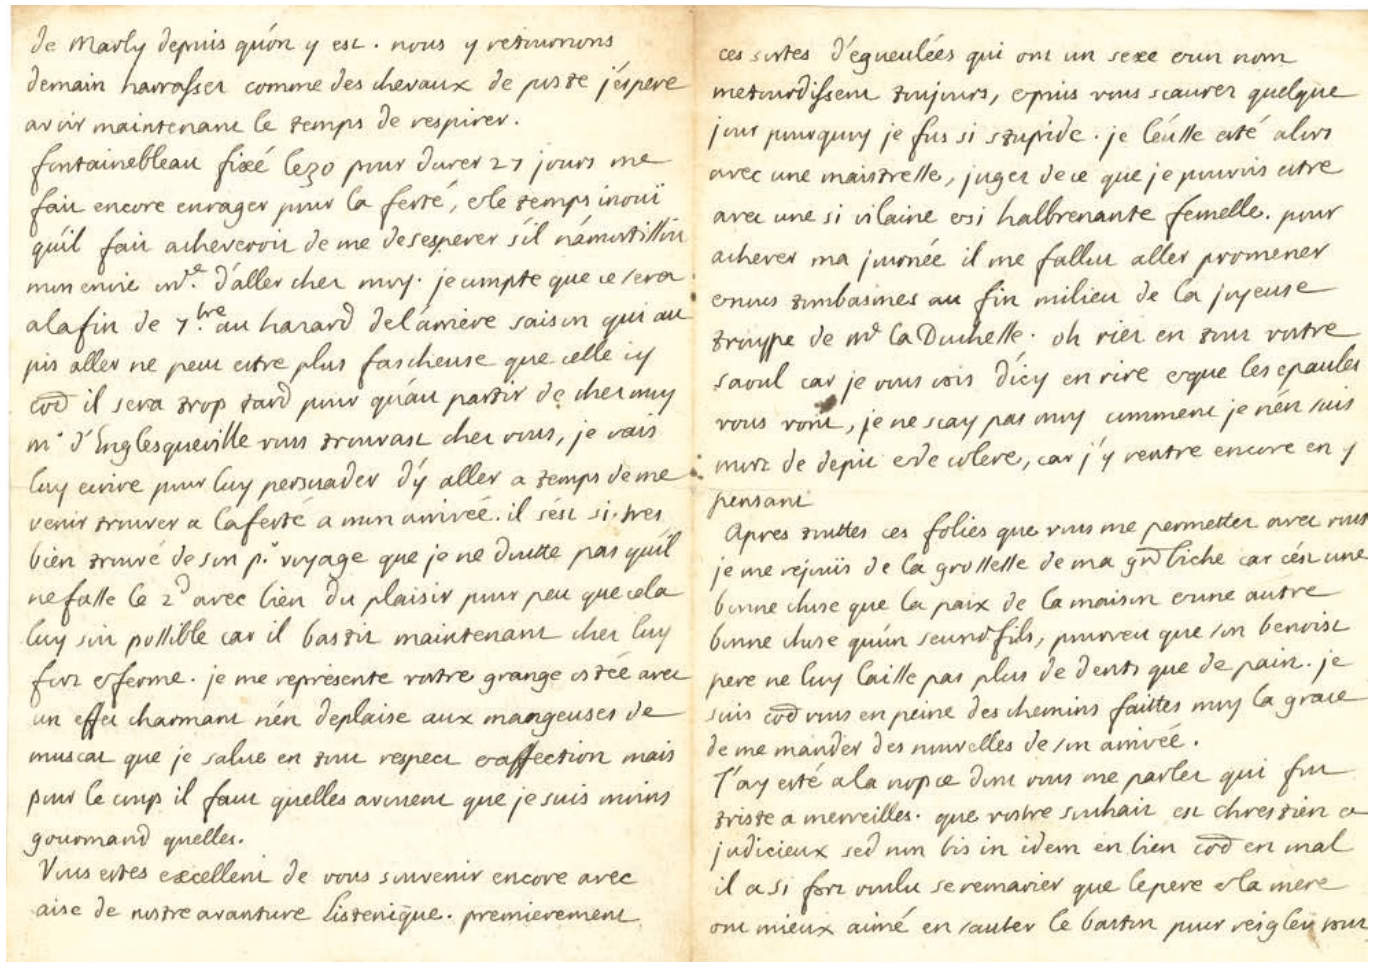 de Marly depuis qu'on y est. nous y retournons
demain harrassez comme des chevaux de poste j'espere
avoir maintenant le temps de respirer.
fontainebleau fixé le 30 pour durer 27 jours me
fait encore enrager pour la ferté, et le temps inoüi
qu'il fait acheveroit de me desesperer s'il n'amortissoit
mon envie d'aller chez moy. je compte que ce sera
a la fin de 7.bre au hazard de l'arriere saison qui au
pis aller ne peut estre plus fascheuse que celle icy
il sera trop tard pour qu'au partir de chez moy
mr d'Englesqueville vous trouvast chez vous, je vais
luy ecrire pour luy persuader d'y aller a temps de me
venir trouver a la ferté a mon arrivée. il s'est si tres
bien trouvé de son p.r voyage que je ne doutte pas qu'il
ne fasse le 2d avec bien du plaisir pour peu que cela
luy soit possible car il bastit maintenant chez luy
fort et ferme. je me represente vostre grange ostée avec
un effet charmant n'en deplaise aux mangeuses de
muscat que je salue en tout respect et affection mais
pour le coup il faut quelles avouent que je suis moins
gourmand quelles.
Vous estes excellent de vous souvenir encore avec
aise de nostre avanture listenique. premierement
ces sortes d'égueulées qui ont un sexe et un nom
m'etourdissent toujours, et puis vous scaurez quelque
jour pourquoy je fus si stupide. je l'eusse esté alors
avec une maistresse, jugez de ce que je pouvois estre
avec une si vilaine et si halbrenante femelle. pour
achever ma journée il me fallut aller promener
et nous tombasmes au fin milieu de la joyeuse
trouppe de me la Duchesse. oh riez en tout vostre
saoul car je vous vois d'icy en rire et que les epaules
vous vont, je ne scay pas moy comment je n'en suis
mort de depit et de colere, car j'y rentre encore en y
pensant
Apres touttes ces folies que vous me permettez avec vous
je me rejouis de la grossesse de ma biche car c'est une
bonne chose que la paix de la maison et une autre
bonne chose qu'un second fils, pourveu que son benoist
pere ne luy laisse pas plus de dents que de pain. je
suis vous en peine des chemins faittes moy la grace
de me mander des nouvelles de son arrivée.
J'ay esté a la nopce dont vous me parlez qui fut
triste a merveilles. que vostre souhait est chrestien et
judicieux sed non bis in idem en bien en mal
il a si fort voulu se remarier que le pere et la mere
ont mieux aimé en sauter le baston pour reigler tout